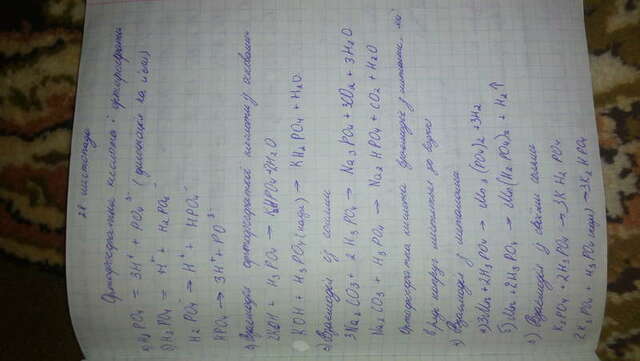 28 листопада
Ортофосфатна кислота і ортофосфати
1) H3PO4 = 3H+ + PO4 3- (дисоціація на йони)
2) H3PO4 = H+ + H2PO4-
H2PO4- → H+ + HPO4-
HPO4 → 3H+ + PO 3-
Взаємодія ортофосфатної кислоти з
2KOH + H3PO4 → K2HPO4 + 2H2O
KOH + H3PO4 (надл) → KH2PO4 + H2O
Взаємодія із солями
3Na2CO3 + 2H3PO4 → Na3PO4 + 3CO2 + 3H2O
Na2CO3 + H3PO4 → Na2HPO4 + CO2 + H2O
Ортофосфатна кислота взаємодіє з
в ряді до водню
Взаємодія з металами
а) 3Mn + 2H3PO4 → Mn3(PO4)2 + 3H2
б) Mn + 2H3PO4 → Mn(H2PO4)2 + H2↑
Взаємодія з своїми солями
K3PO4 + 2H3PO4 → 3KH2PO4
2K3PO4 + H3PO4 → 3K2HPO4